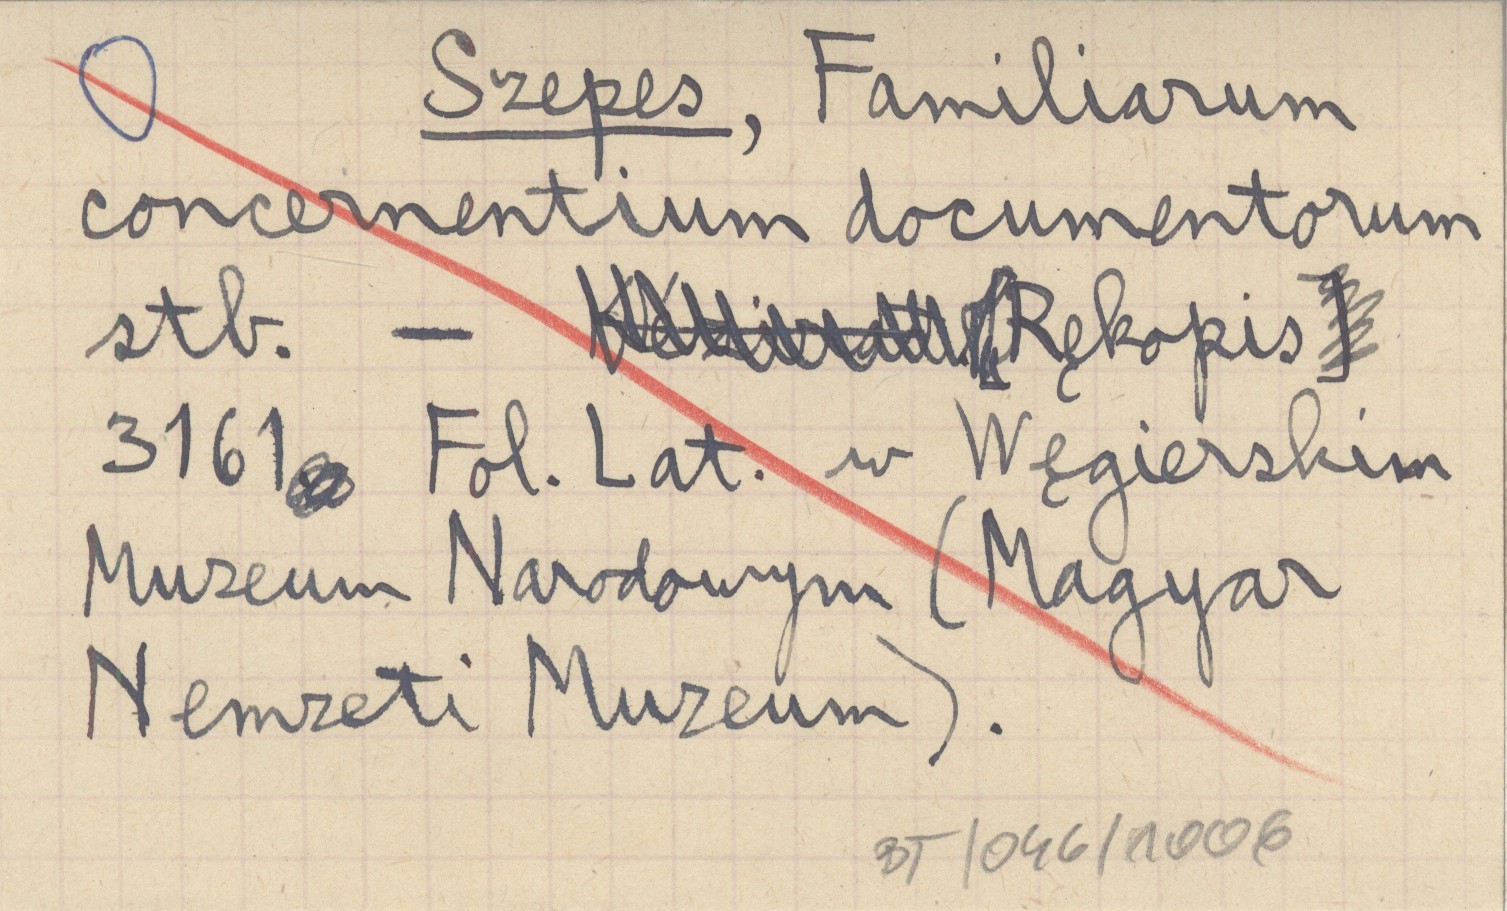 Szepes, Familiarum
concernentium documentorum
stb. — [Rękopis]
3161 Fol. Lat. w Węgierskim
Muzeum Narodowym (Magyar
Nemzeti Muzeum).
BT/046/1006